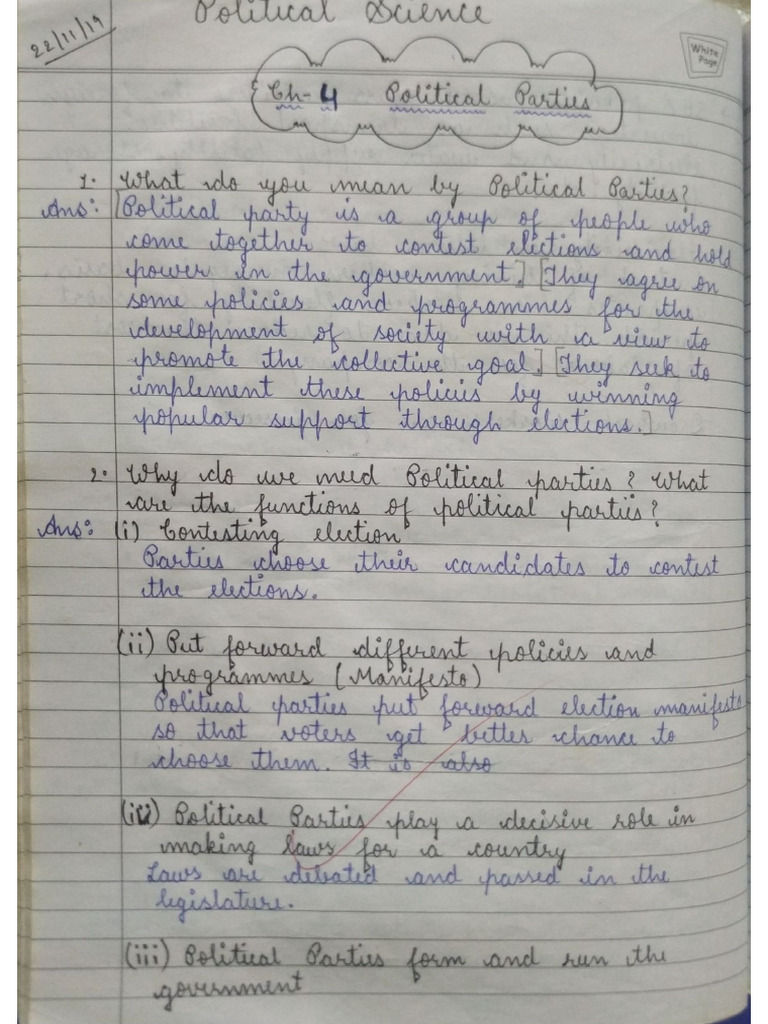 Political Science
22/11/19
White Page
Ch-4 Political Parties
1. What do you mean by Political Parties?
Ans: [Political party is a group of people who
come together to contest elections and hold
power in the government.] [They agree on
some policies and programmes for the
development of society with a view to
promote the collective goal.] [They seek to
implement these policies by winning
popular support through elections.]
2. Why do we need Political parties? What
are the functions of political parties?
Ans: (i) Contesting election
Parties choose their candidates to contest
the elections.
(ii) Put forward different policies and
programmes (Manifesto)
Political parties put forward election manifesto
so that voters get better chance to
choose them. It is also
(iii) Political Parties play a decisive role in
making laws for a country
Laws are debated and passed in the
legislature.
(iii) Political Parties form and run the
government